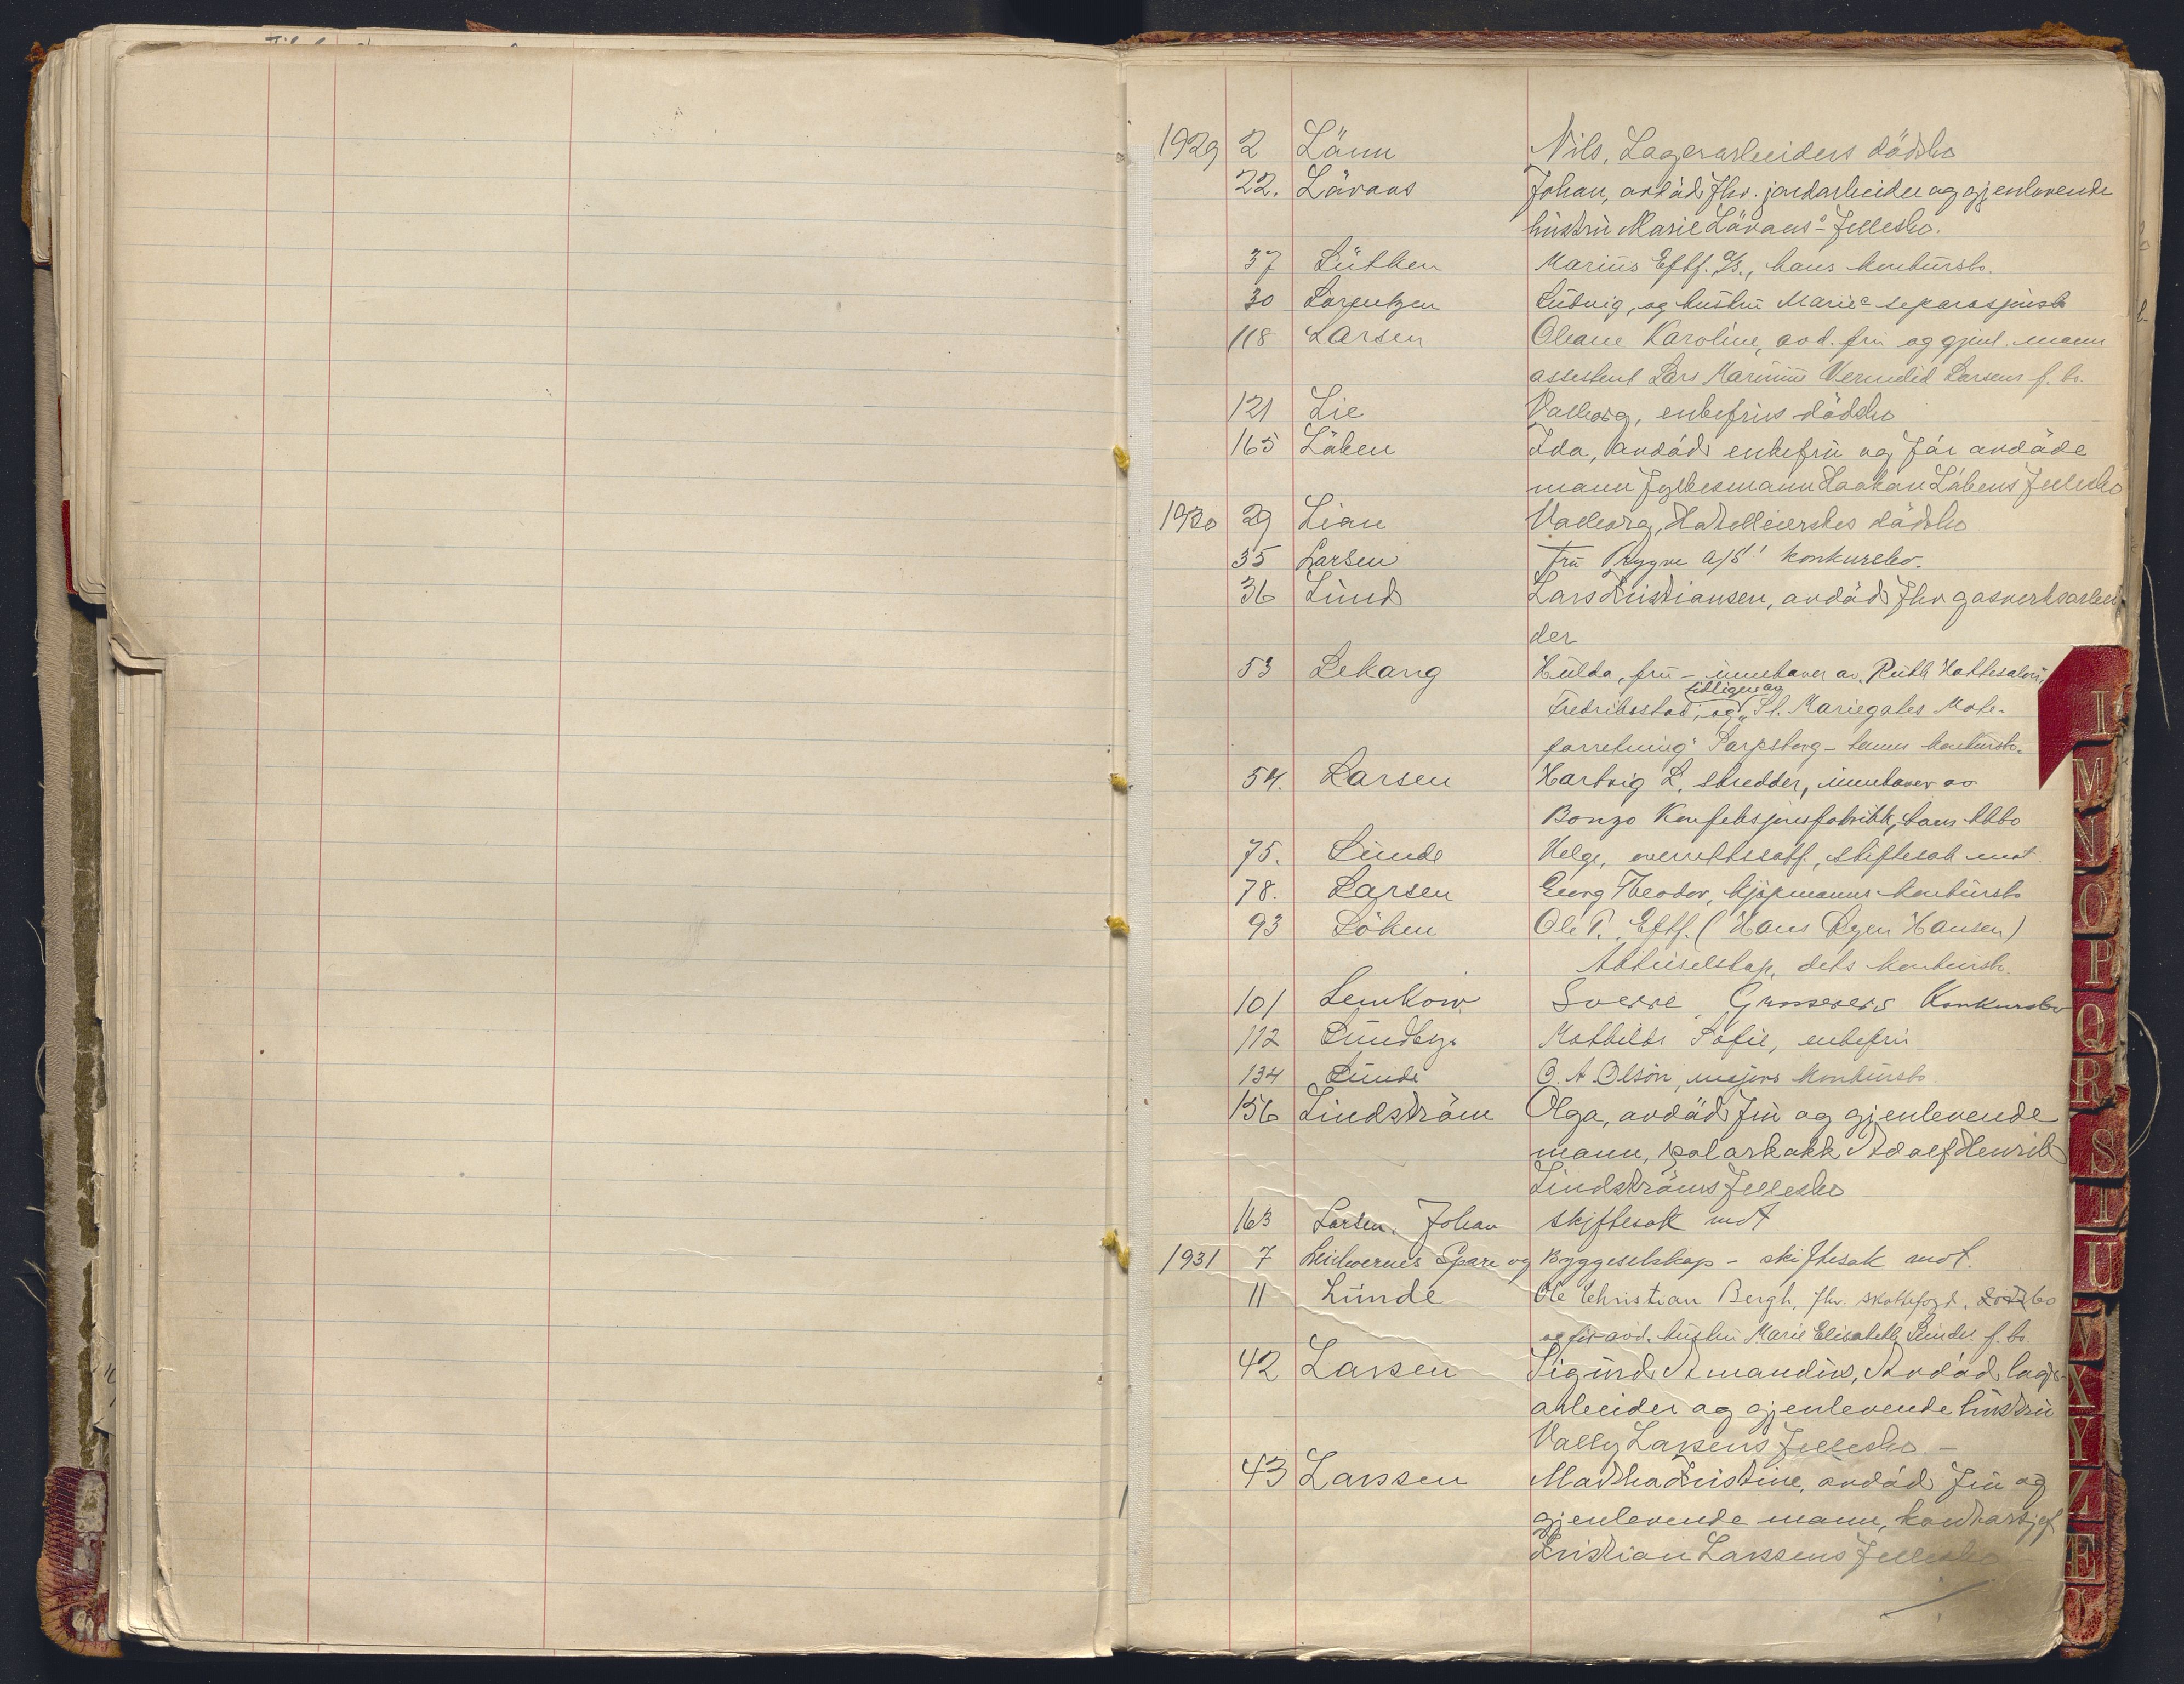 1929 2 Länn Nils, Lagerarbeiders dödsbo
22. Lövaas Johan, avdöd fhv. jordarbeider og gjenlevende
hustru Marie Lövaas' Fellesbo.
37 Lütken Marius Eftf. A/S., hans konkursbo.
30 Lorentzen Ludvig, og hustru Marie's separasjonsbo
118 Larsen Oleane Karoline, avd. fru og gjenl. mann
assistent Lars Marinius Larsens f. bo.
121 Lie Valborg, enkefrus dödsbo
165 Löken Ida, avdöd enkefru og för avdöde
mann Fylkesmann Haakon Lökens Fellesbo
1930 29 Lian Valborg, Hotelleierskes dödsbo
35 Larsen fru Trygve A/S' konkursbo.
36 Lund Lars Kristiansen, avdöd fhv gasverksarbei
der
53 Lekang Hulda, fru - innehaver av "Ruth Hattesalon",
tidligere og
Fredriksstad, og "St. Mariegates Mote-
forretning" Sarpsborg - hennes konkursbo.
54. Larsen Hartvig L, skredder, innehaver av
Bonzo Konfeksjonsfabrikk, hans kkbo
75. Lunde Helge, overrettssakf., skiftesak mot
78. Larsen Georg Theodor, kjöpmanns konkursbo
93 Löken Ole P. Eftf. (Hans Ryen Hansen)
Aktieselskap, dets konkursbo.
101 Lemkow Sverre, Grosserers Konkursbo
112 Lundby Mathilde Sofie, enkefru
134 Lunde O. A. Olsön, majors konkursbo.
156 Lindström Olga, avdöd fru og gjenlevende
mann, polarkokk Adolf Henrik
Lindströms Fellesbo
163 Larsen, Johan skiftesak mot
1931 7 Leieboernes Spare og Byggeselskap - skiftesak mot.
11 Lunde Ole Christian Bergh, fhv. skattefogd, dödsbo
og för avd. hustru Marie Elisabeth Lundes f. bo.
42 Larsen Sigurd Amandus, Avdöd lager-
arbeider og gjenlevende hustru
Vally Larsens Fellesbo. -
43 Larssen Martha Kristine, avdöd fru og
gjenlevende mann, kontorsjef
Kristian Larssens Fellesbo
I
M
N
O
P
Q
R
S
T
U
V
X
Y
Z
Æ